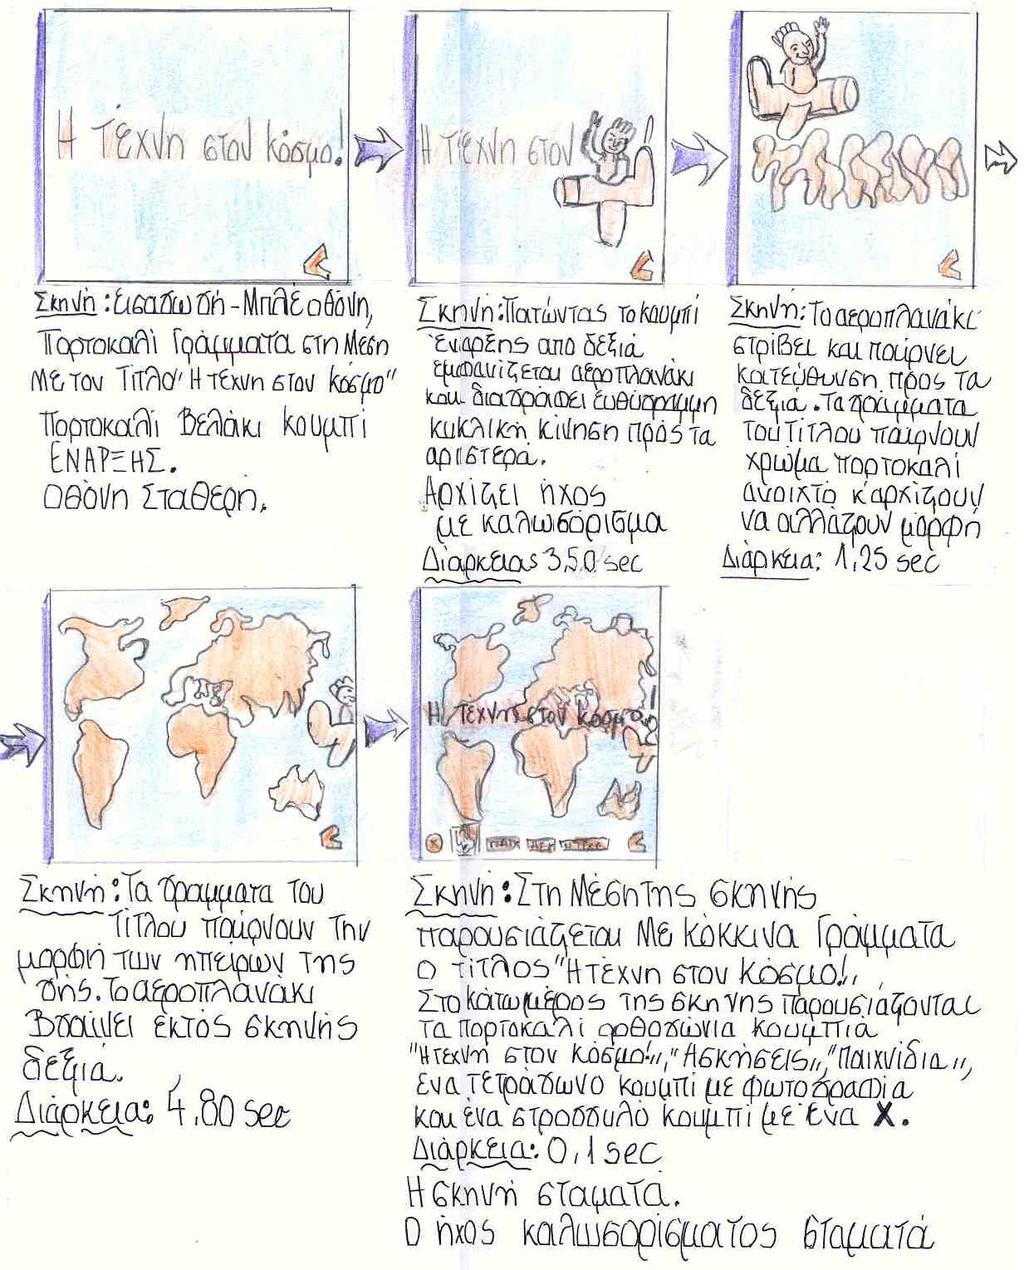 Η τέχνη στον κόσμο!
Η τέχνη στον
Σκηνή: Εισαγωγή - Μπλέ οθόνη,
Πορτοκαλί Γράμματα στη Μέση
Με τον Τίτλο "Η τέχνη στον κόσμο"
Πορτοκαλί Βελάκι κουμπί
ΕΝΑΡΞΗΣ.
Οθόνη Σταθερή.
Σκηνή: Πατώντας το κουμπί
έναρξης απο δεξιά
εμφανίζεται αεροπλανάκι
και διαγράφει ευθύγραμμη
κυκλική κίνηση πρός τα
αριστερά.
Αρχίζει ήχος
με καλωσόρισμα
Διάρκειας 3,50 sec
Σκηνή: Το αεροπλανάκι
στρίβει και παίρνει
κατεύθυνση προς τα
δεξιά. Τα γράμματα
του Τίτλου παίρνουν
χρώμα πορτοκαλί
ανοιχτό κ' αρχίζουν
να αλλάζουν μορφή
Διάρκεια: 1,25 sec
Η τέχνη στον κόσμο!
Σκηνή: Τα γραμματα του
Τίτλου παίρνουν την
μορφή των ηπείρων της
γής. Το αεροπλανάκι
Βγαίνει εκτός σκηνής
δεξιά.
Διάρκεια: 4,80 sec
Σκηνή: Στη Μέση της σκηνής
παρουσιάζεται Με κόκκινα Γράμματα
ο τίτλος "Η τέχνη στον κόσμο!"
Στο κάτω μέρος της σκηνης παρουσιάζονται
τα πορτοκαλί ορθογώνια κουμπιά
"Η τεχνη στον κόσμο!", "Ασκήσεις", "Παιχνίδια",
ένα τετράγωνο κουμπί με φωτογραφία
και ένα στρογγυλό κουμπί με ένα Χ.
Διάρκεια: 0,1 sec
Η σκηνή σταματά.
Ο ήχος καλωσορίσματος σταματά